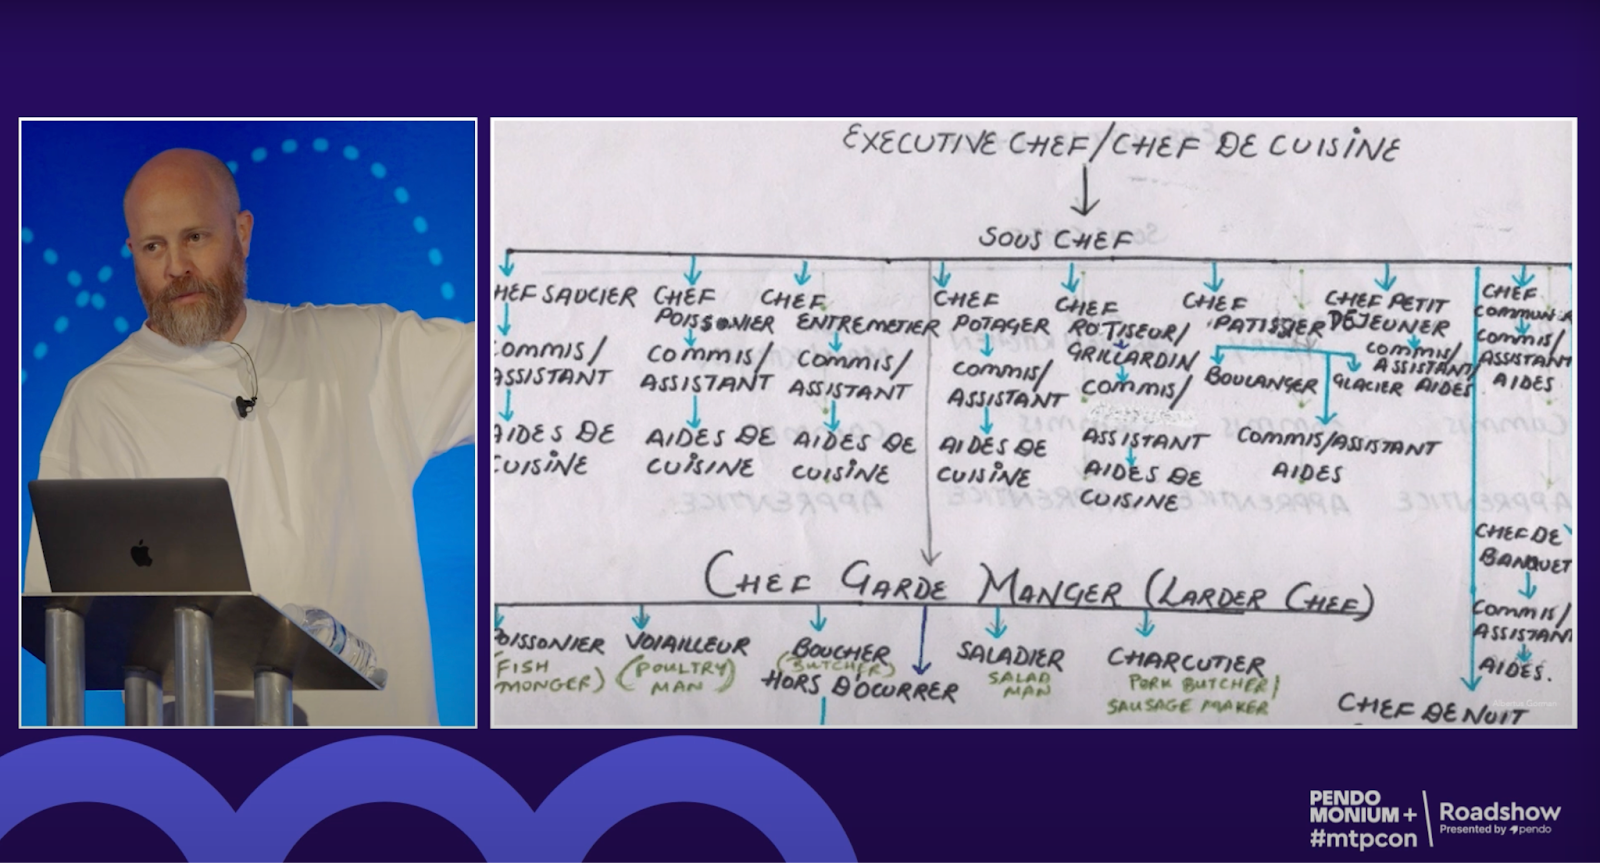 EXECUTIVE CHEF/CHEF DE CUISINE
SOUS CHEF
HEF SAUCIER
OMMIS/
ASSISTANT
AIDES DE
CUISINE
CHEF
POISSONIER
COMMIS/
ASSISTANT
AIDES DE
CUISINE
CHEF
ENTREMETIER
COMMIS/
ASSISTANT
AIDES DE
CUISINE
CHEF
POTAGER
COMMIS/
ASSISTANT
AIDES DE
CUISINE
CHEF
ROTISEUR/
GRILLARDIN
COMMIS/
ASSISTANT
AIDES DE
CUISINE
CHEF
PATISSIER
BOULANGER
GLACIER
COMMIS/ASSISTANT
AIDES
CHEF PETIT
DÉJEUNER
COMMIS/
ASSISTANT
AIDES
CHEF
COMMUNA
COMMIS/
ASSISTANT
AIDES
CHEF DE
BANQUET
COMMIS/
ASSISTAN
AIDES.
CHEF DE NUIT
CHEF GARDE MANGER (LARDER CHEF)
OISSONIER
(FISH
MONGER)
VOIAILLEUR
(POULTRY
MAN)
BOUCHER
(BUTCHER)
HORS DOCURRER
SALADIER
SALAD
MAN
CHARCUTIER
PORK BUTCHER/
SAUSAGE MAKER
PENDO
MONIUM+
#mtpcon
Roadshow
Presented by pendo